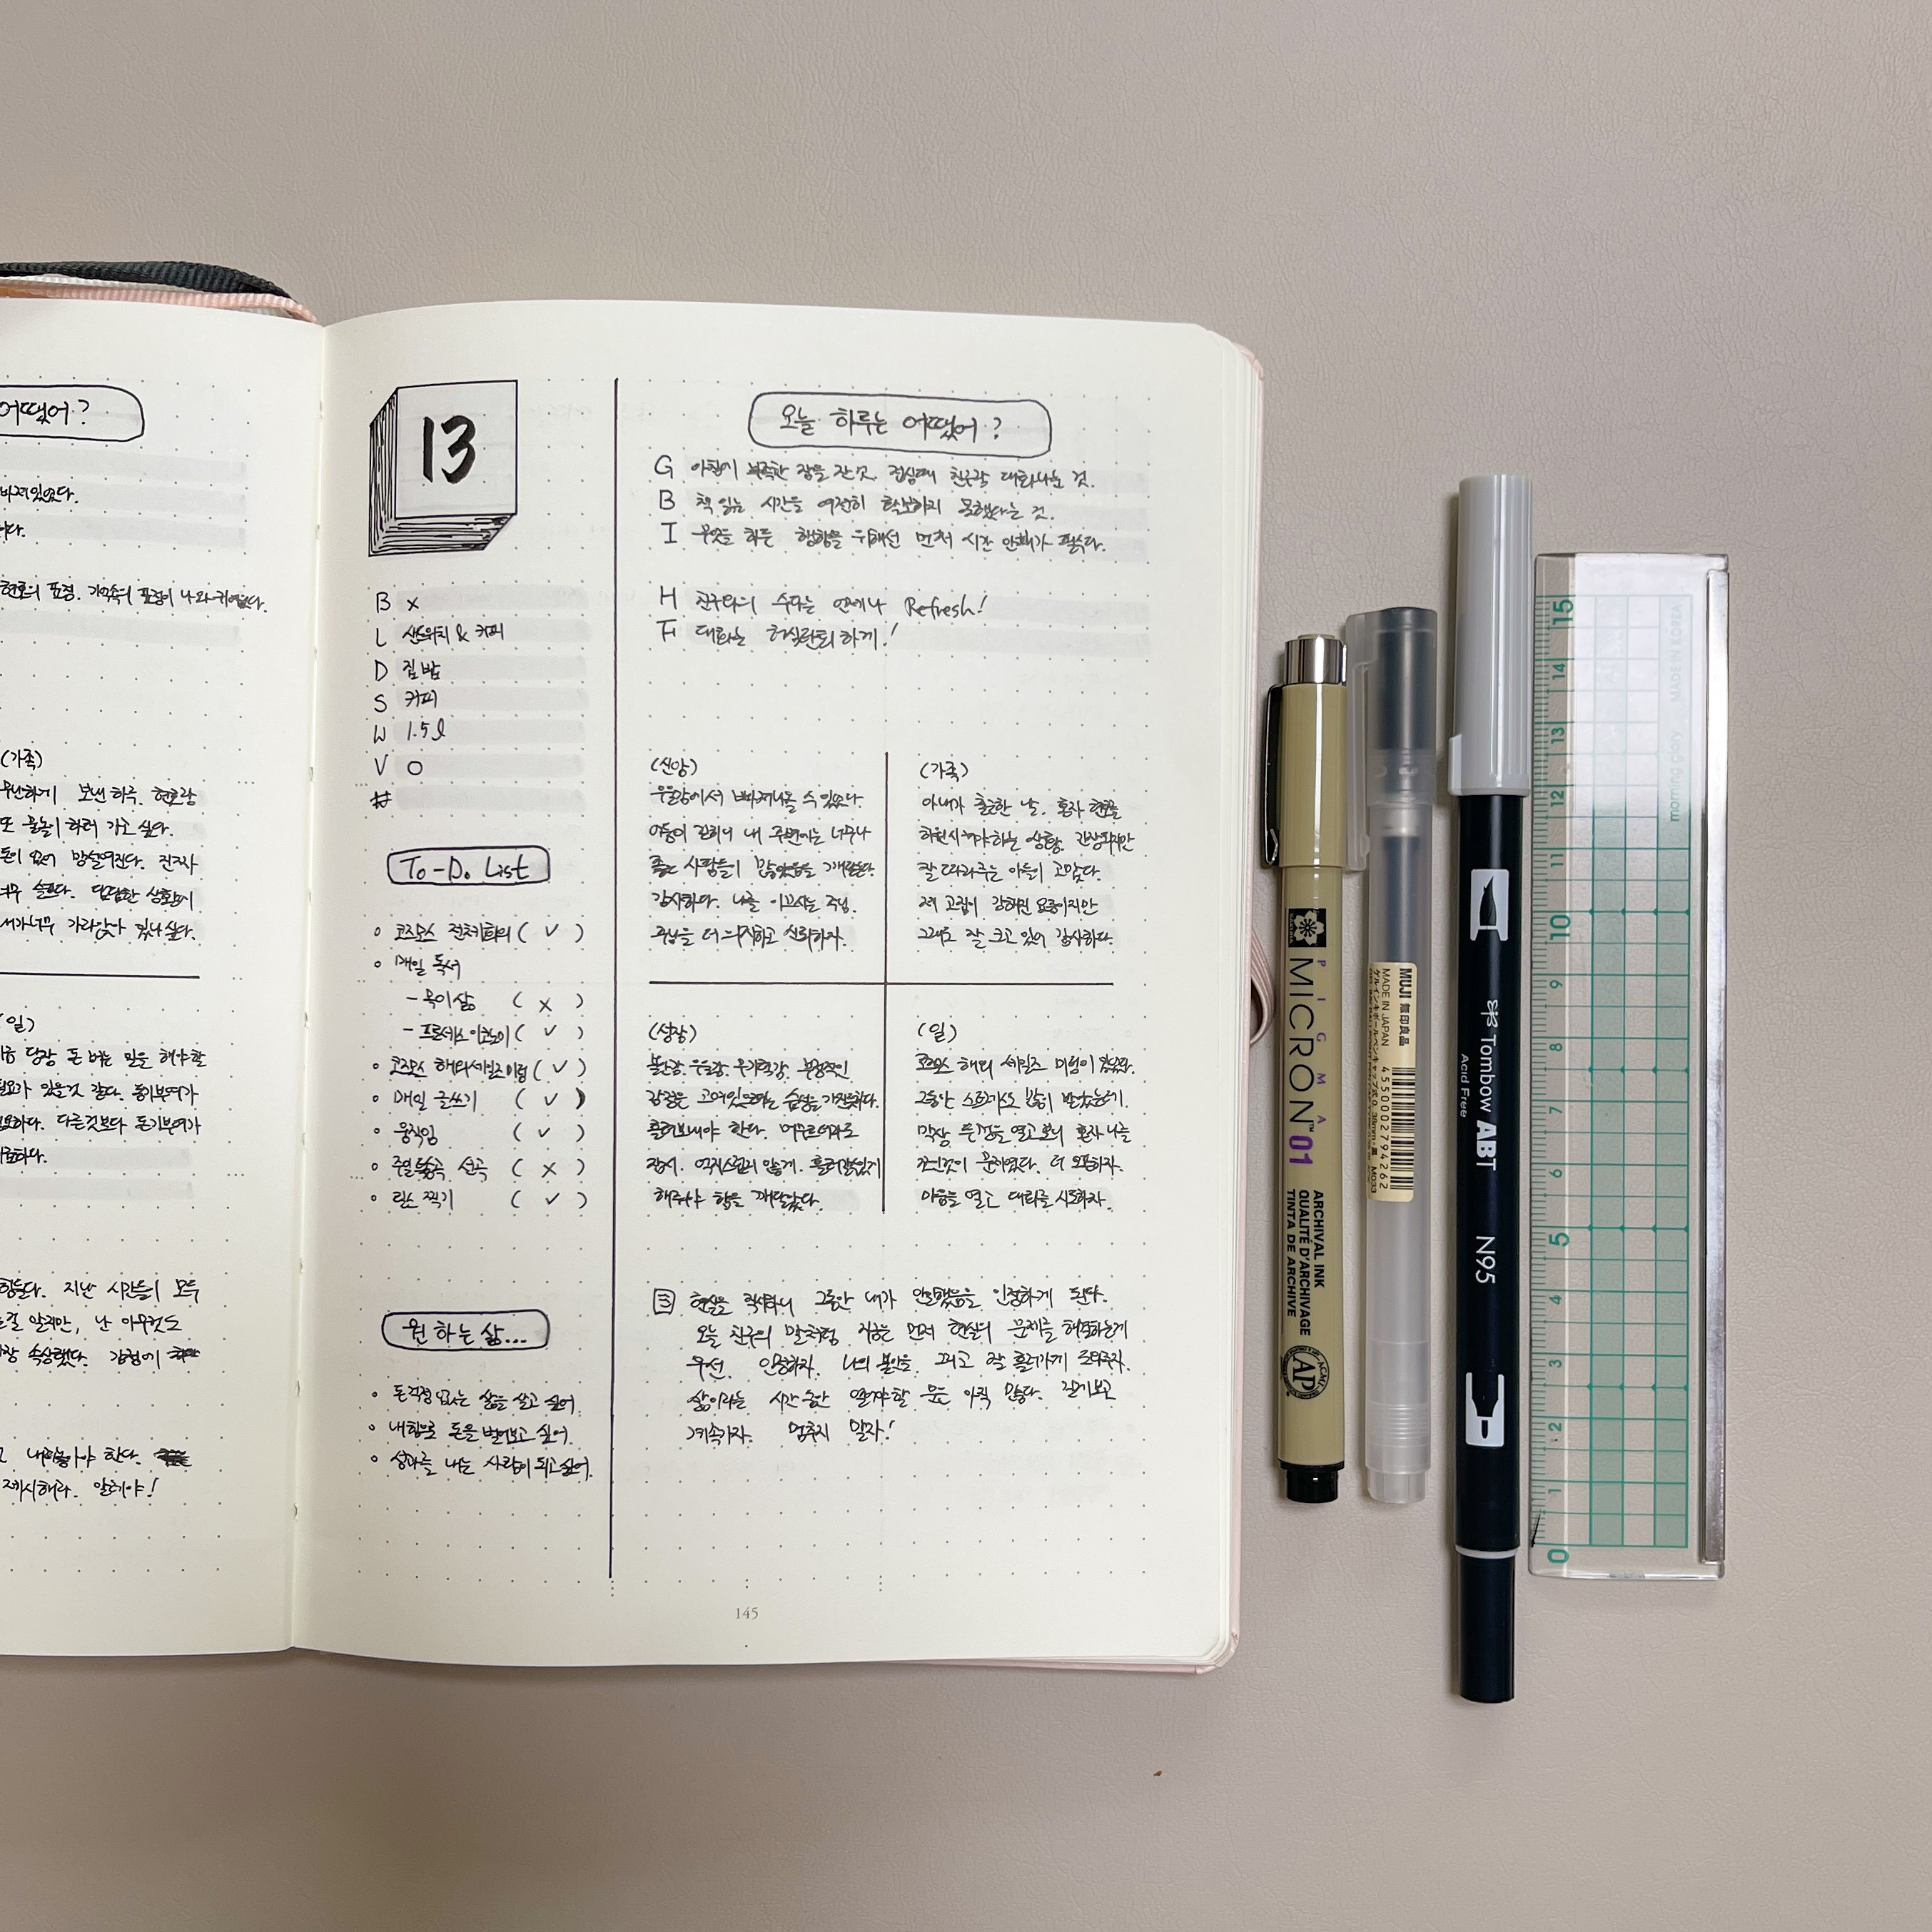 어땠어?
빠져있었다.
현호의 표정. 기억속의 표정이 나와 귀여웠다.
(가족)
무난하게 보낸 하루. 현호랑
또 물놀이 하러 가고 싶다.
돈이 없어 망설여진다. 진짜
너무 슬프다. 답답한 상황이
가라앉아 있나 싶다.
(일)
당장 돈 버는 일을 해야 할
필요가 있을것 같다. 동기부여가
필요하다. 다른것보다 동기부여가
필요하다.
힘들다. 지난 시간들이 모두
알지만, 난 아무것도
속상했다. 감정이
내려놓아야 한다.
제시해라. 알레야!
13
B x
L 샌드위치 & 커피
D 집밥
S 커피
W 1.5l
V O
#
To-Do List
코즈모스 전체회의 ( ✓ )
매일 독서
- 목이삶 ( x )
- 프로세스 이코노미 ( ✓ )
코즈모스 해외세일즈미팅 ( ✓ )
매일 글쓰기 ( ✓ )
움직임 ( ✓ )
주일 선곡 ( x )
릴스 찍기 ( ✓ )
원하는 삶...
돈걱정 없는 삶을 살고 싶어.
내힘으로 돈을 벌어보고 싶어.
성과를 내는 사람이 되고싶어.
오늘 하루는 어땠어?
G 아침에 부족한 잠을 잔 것. 점심에 친구랑 대화나눈 것.
B 책 읽는 시간을 여전히 확보하지 못했다는 것.
I 무엇을 하든 행함을 위해선 먼저 시간 안배가 필수다.
H 친구와의 수다는 언제나 Refresh!
F 대화는 허심탄회하게!
(신앙)
우울감에서 빠져나올 수 있었다.
어둠이 걷히니 내 주변에는 너무나
좋은 사람들이 많았음을 깨닫는다.
감사하다. 나를 이끄시는 주님.
주님을 더 의지하고 신뢰하자.
(가족)
아내가 출근한 날. 혼자 현호를
하원시켜야 하는 상황. 긴장되지만
잘 따라주는 아들이 고맙다.
제 고집이 강해진 요즘이지만
그래도 잘 크고 있어 감사하다.
(성장)
불안감, 우울감, 무기력감, 부정적인
감정은 고여있으려는 습성을 가진듯하다.
흘려보내야 한다. 머무르더라도
잠시. 억지스럽지 않게. 흘러갈수있게
해주어야 함을 깨달았다.
(일)
코즈모스 해외 세일즈 미팅이 있었다.
그동안 스트레스도 많이 받았는데.
막상 뚜껑을 열고 보니 혼자 나를
가둔것이 문제였다. 더 오픈하자.
마음을 열고 대화를 시도하자.
현실을 직시하니 그동안 내가 안일했음을 인정하게 된다.
오늘 친구의 말처럼 지금은 먼저 현실의 문제를 해결하는게
우선. 인정하자. 나의 불안을. 그리고 잘 흘러가게 도와주자.
삶이라는 시간 동안 열어야 할 문은 아직 많다. 걷기보고
계속가자. 멈추지 말자!
145
PIGMA
MICRON™ 01
ARCHIVAL INK
QUALITÉ D'ARCHIVAGE
TINTA DE ARCHIVE
AP
MUJI 無印良品
MADE IN JAPAN
4550002794262
Tombow ABT
Acid Free
N95
morning glory MADE IN KOREA
15
14
13
12
11
10
9
8
7
6
5
4
3
2
1
0